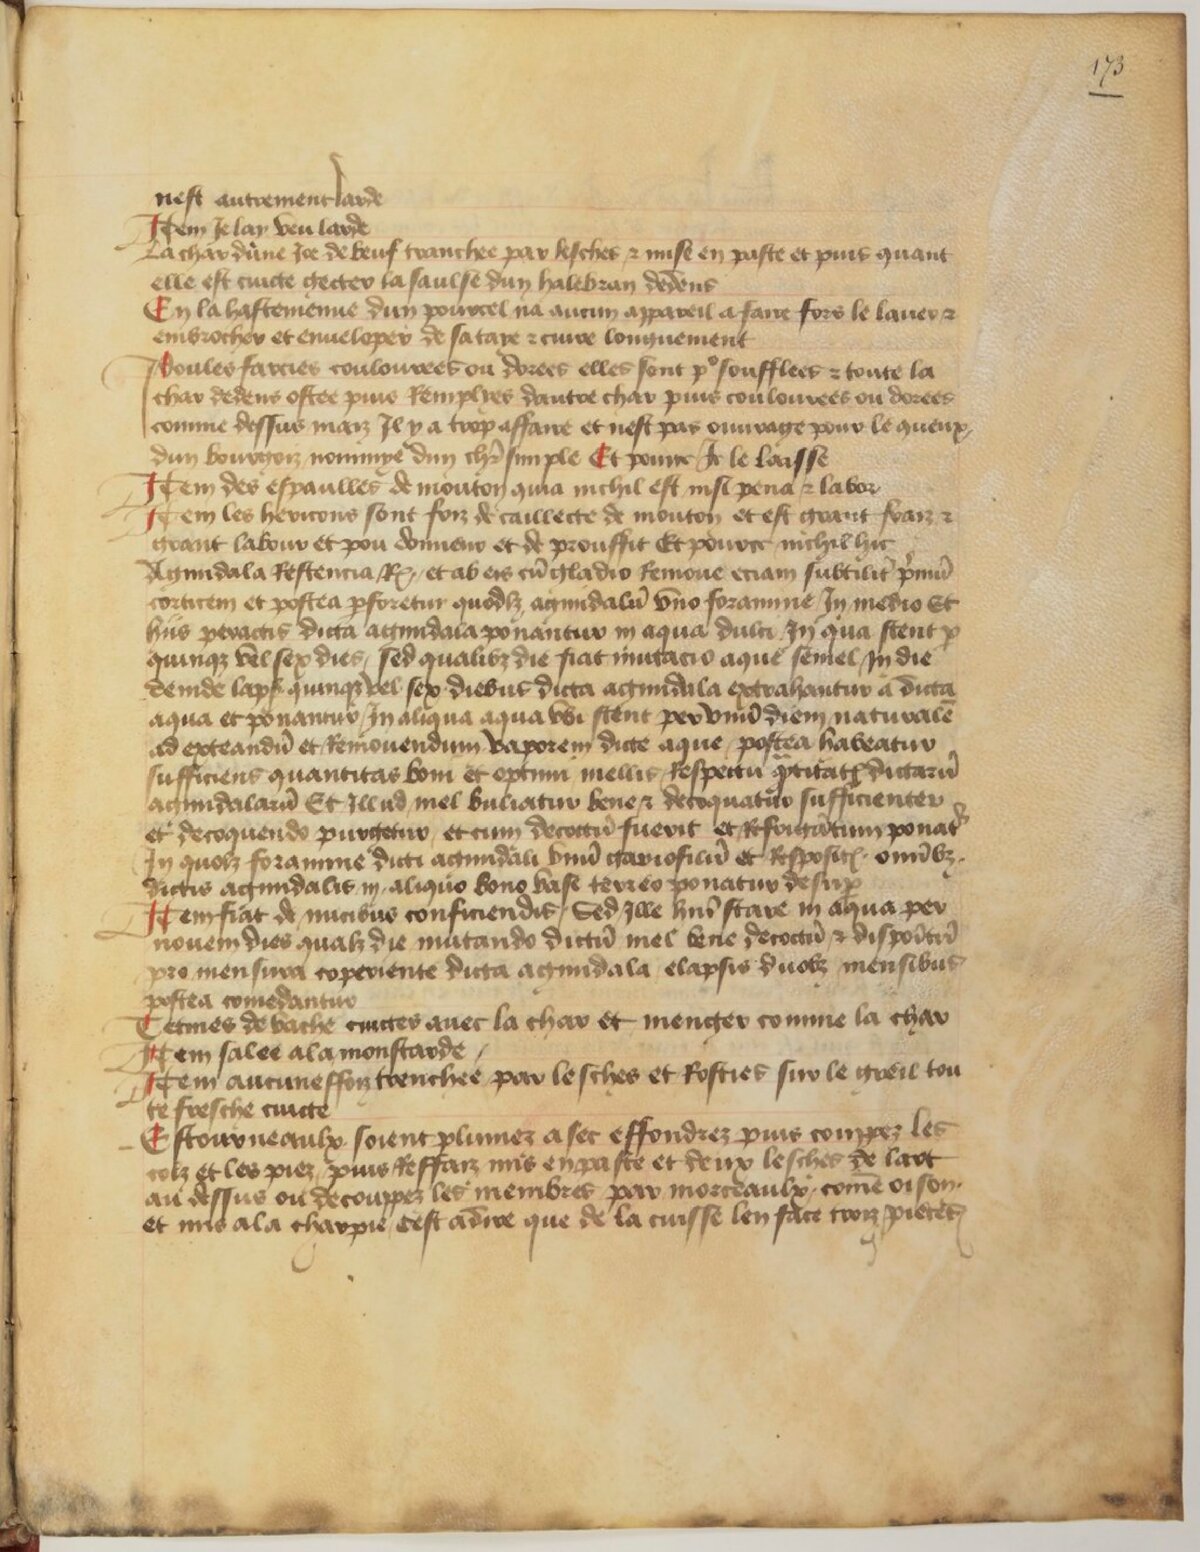 173
nest autrement larde
Item Je lay veu larde
La char dune Joe de beuf tranchee par lesches & mise en paste et puis quant
elle est cuicte gecter la saulse dun halebran dedens
En la hastemenue dun pourcel na aucun appareil a faire fors le lauer &
embrocher et enueloper de sa taye & cuire longuement
Poules farcies coulourees ou dorees elles sont po soufflees & toute la
char dedens ostee puis Remplies dautre char puis coulourees ou dorees
comme dessus maiz Il y a trop affaire et nest pas ouurage pour le queux
dun bourgoiz, nommye dun chlr simple Et pource Je le laisse
Item des espaulles de mouton quia nichil est nisi pena & labor
Item les hericons sont faiz de caillecte de mouton et est grant fraiz &
grant labour et pou donneur et de prouffit Et pource nichil hic
Agmidala Restencia Rx, et ab eis cu gladio Remoue eciam subtilit pmu
corticem et postea pforetur quodlz agmidalu vno foramine In medio Et
hiis peractis dicta agmidala ponantur in aqua dulci In qua stent p
quinqz vel sex dies, sed qualibz die fiat mutacio aque semel In die
deinde laps quinqz vel sex diebus dicta agmidala extrahantur a dicta
aqua et ponantur In aliqua aqua vbi stent per vnu diem naturale
ad exteandu et Remouendum vaporem dicte aque postea habeatur
sufficiens quantitas boni et optimi mellis Respectu qtitat dictaru
agmidalaru Et Illud mel buliatur bene & decoquatur sufficienter
et decoquendo purgetur et cum decoctu fuerit et Refrigdatum ponat
In quolz foramine dicti agmidali vnu gariofiliu et Reposit omibz
dictis agmidalis in aliquo bono vase terreo ponatur desup
Item fiat de nucibus conficiendis Sed Ille hnt stare in aqua per
nouem dies qualz die mutando dictu mel bene decoctu & dispoitu
pro mensura coperiente dicta agmidala elapsis duobz mensibus
postea comedantur
Tetines de vache cuictes auec la char et menger comme la char
Item salee a la moustarde
Item aucuneffoiz trenchee par lesches et Rosties sur le greil tou
te fresche cuicte
Estourneaulx soient plumez a sec effondrez puis couppez les
colz et les piez, puis Reffaiz mis en paste et deux lesches de lart
au dessus ou decouppez les membres par morceaulx come oison
et mis a la charpie cest adire que de la cuisse len face troiz pieces